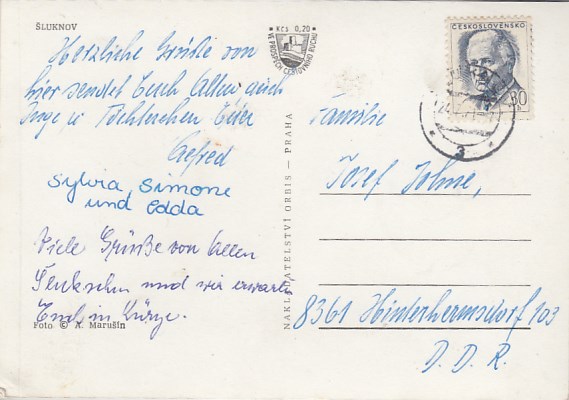 ŠLUKNOV
Herzliche Grüße von
hier sendet Euch Allen auch
Inge u Töchterchen Euer
Alfred
Sylvia, Simone
und Edda
Viele Grüße von Allen
und wir erwarten
Euch in Kürze.
Foto © A. Marušin
Kčs 0,20
VE PROSPĚCH CESTOVNÍHO RUCHU
NAKLADATELSTVÍ ORBIS — PRAHA
ČESKOSLOVENSKO
3
Familie
Josef Johne,
8361 Hinterhermsdorf 103
D. D. R.